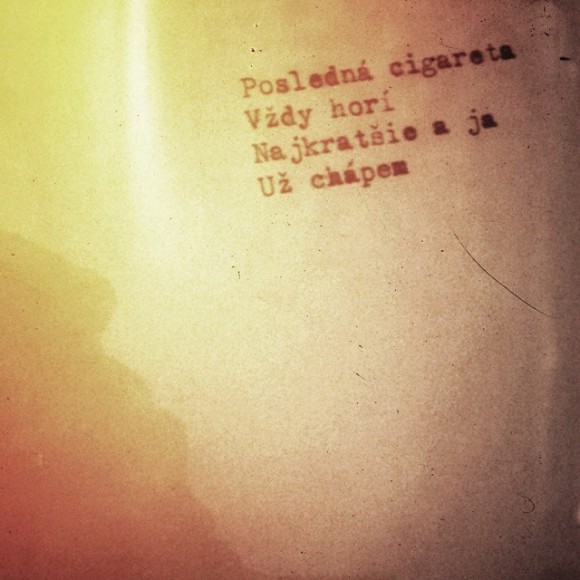 Posledná cigareta
Vždy horí
Najkratšie a ja
Už chápem